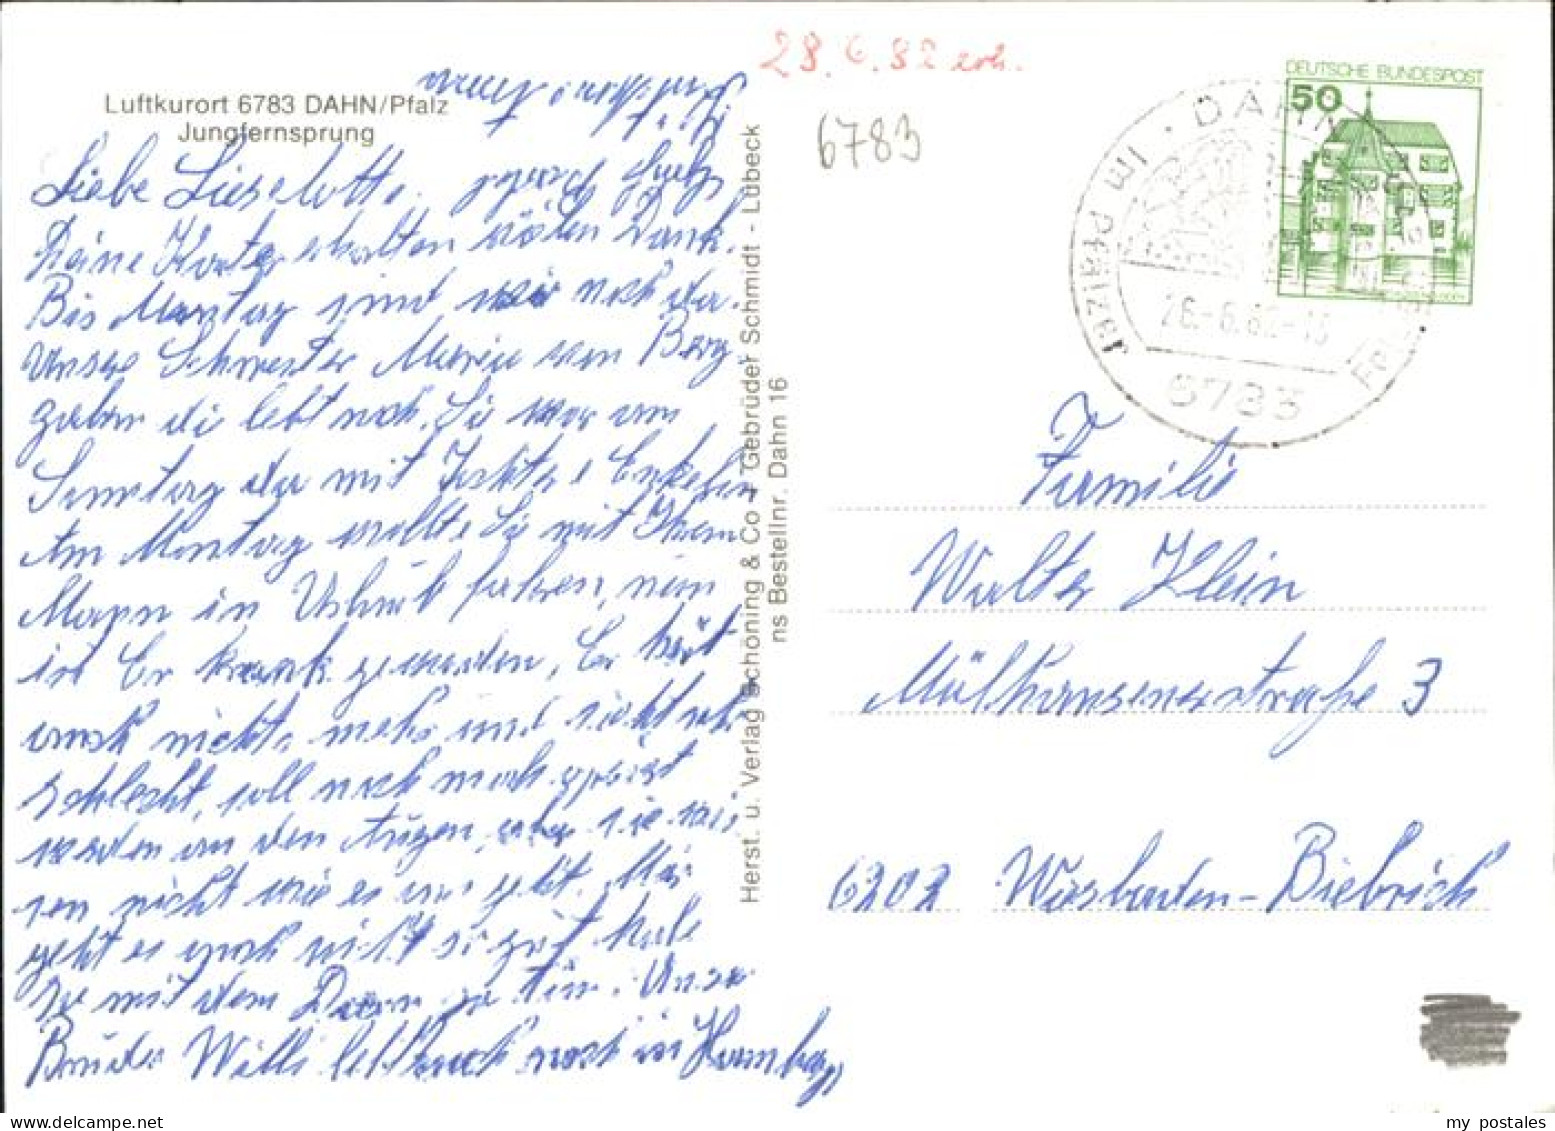 Luftkurort 6783 DAHN/Pfalz
Jungfernsprung
Liebe Lieselotte
Deine Karte erhalten vielen Dank.
Bis Montag sind wir noch da.
Unsere Schwester Marie von Berg
zabern di lebt noch. Sie war am
Samstag da mit Tochter Enkelin
Am Montag wollte Sie mit Ihrem
Mann in Urlaub fahren, nun
ist Er krank geworden, Er hört
auch nichts mehr und sieht sehr
schlecht, soll noch mach operiert
werden an den Augen, aber sie wis
sen nicht wie es aus geht. Mir
geht es auch nicht so gut habe
so mit dem Darm zu tun. Unser
Bruder Willi lebt auch noch in Homburg
Herst. u. Verlag Schöning & Co + Gebrüder Schmidt - Lübeck
ns Bestellnr. Dahn 16
28.6.82 erh.
6783
DEUTSCHE BUNDESPOST
50
DAHN
IM PFÄLZER
26.-6.82-13
6783
Familie
Walter Klein
Mülhausenerstraße 3
6202 Wiesbaden-Biebrich
my postales